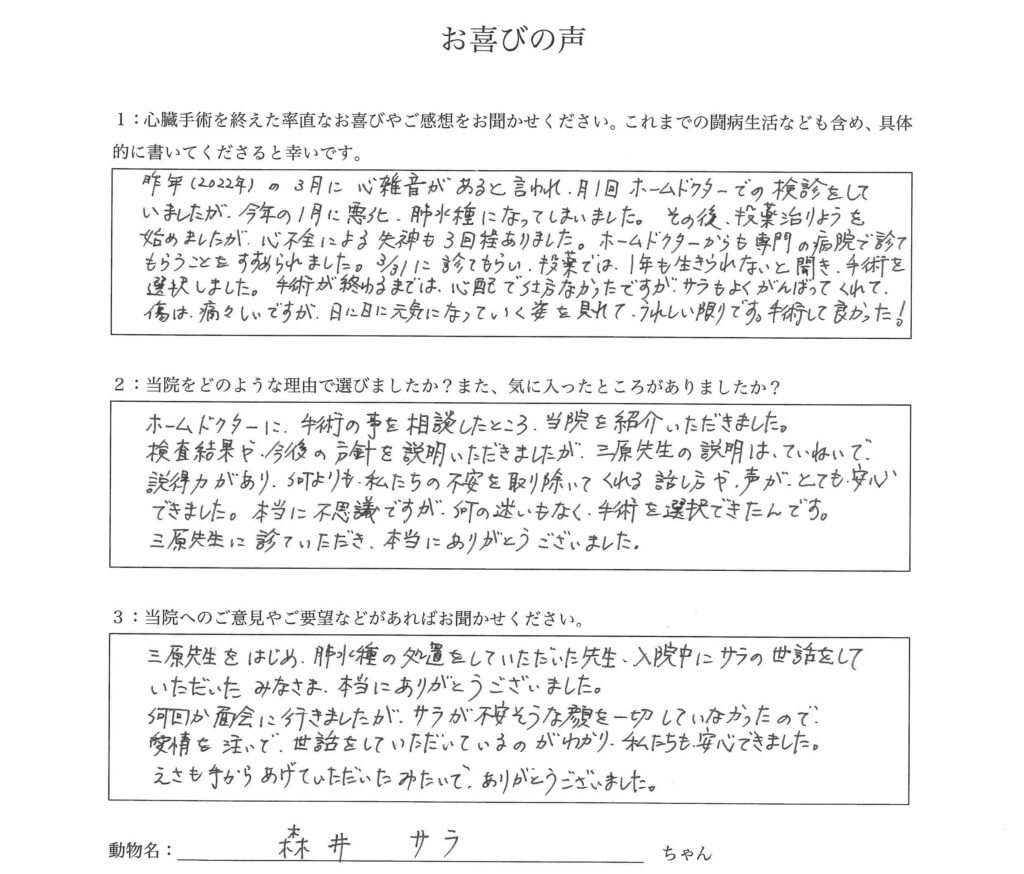 お喜びの声
1：心臓手術を終えた率直なお喜びやご感想をお聞かせください。これまでの闘病生活なども含め、具体
的に書いてくださると幸いです。
昨年(2022年)の3月に心雑音があると言われ、月1回ホームドクターでの検診をして
いましたが、今年の1月に悪化、肺水種になってしまいました。その後、投薬治りょうを
始めましたが、心不全による失神も3回程ありました。ホームドクターからも専門の病院で診て
もらうことをすすめられました。3/31に診てもらい、投薬では、1年も生きられないと聞き、手術を
選択しました。手術が終わるまでは、心配で仕方なかったですが、サラもよくがんばってくれて、
傷は、痛々しいですが、日に日に元気になっていく姿を見れて、うれしい限りです。手術して良かった！
2：当院をどのような理由で選びましたか？また、気に入ったところがありましたか？
ホームドクターに、手術の事を相談したところ、当院を紹介いただきました。
検査結果や、今後の方針を説明いただきましたが、三原先生の説明は、ていねいで、
説得力があり、何よりも、私たちの不安を取り除いてくれる話し方や、声が、とても安心
できました。本当に不思議ですが、何の迷いもなく、手術を選択できたんです。
三原先生に診ていただき、本当にありがとうございました。
3：当院へのご意見やご要望などがあればお聞かせください。
三原先生をはじめ、肺水種の処置をしていただいた先生、入院中にサラの世話をして
いただいたみなさま、本当にありがとうございました。
何回か面会に行きましたが、サラが不安そうな顔を一切していなかったので、
愛情を注いで、世話をしていただいているのがわかり、私たちも安心できました。
えさも手からあげていただいたみたいで、ありがとうございました。
動物名：森井 サラ ちゃん